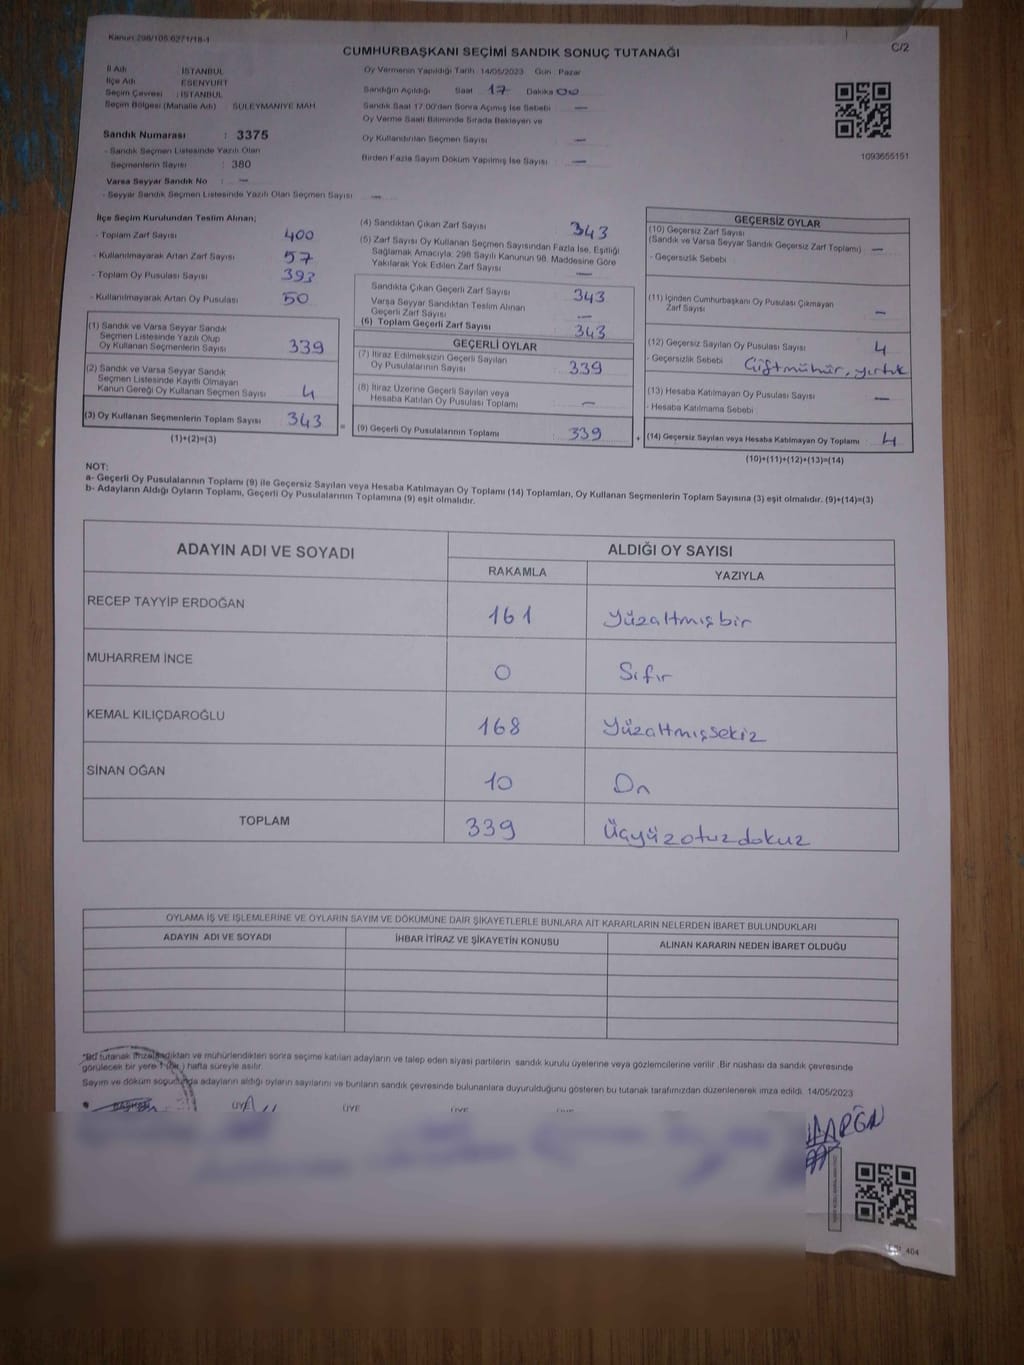 Kanun 298/105 6271/18-1
C/2
CUMHURBAŞKANI SEÇİMİ SANDIK SONUÇ TUTANAĞI
İl Adı : İSTANBUL
İlçe Adı : ESENYURT
Seçim Çevresi : İSTANBUL
Seçim Bölgesi (Mahalle Adı) : SÜLEYMANİYE MAH
Sandık Numarası : 3375
- Sandık Seçmen Listesinde Yazılı Olan
Seçmenlerin Sayısı : 380
Varsa Seyyar Sandık No : —
- Seyyar Sandık Seçmen Listesinde Yazılı Olan Seçmen Sayısı —
Oy Vermenin Yapıldığı Tarih : 14/05/2023 Gün : Pazar
Sandığın Açıldığı Saat 17 Dakika 00
Sandık Saat 17.00'den Sonra Açılmış İse Sebebi —
Oy Verme Saati Bitiminde Sırada Bekleyen ve
Oy Kullandırılan Seçmen Sayısı —
Birden Fazla Sayım Döküm Yapılmış İse Sayısı —
1093655151
İlçe Seçim Kurulundan Teslim Alınan;
- Toplam Zarf Sayısı 400
- Kullanılmayarak Artan Zarf Sayısı 57
- Toplam Oy Pusulası Sayısı 393
- Kullanılmayarak Artan Oy Pusulası 50
(1) Sandık ve Varsa Seyyar Sandık
Seçmen Listesinde Yazılı Olup
Oy Kullanan Seçmenlerin Sayısı 339
(2) Sandık ve Varsa Seyyar Sandık
Seçmen Listesinde Kayıtlı Olmayan
Kanun Gereği Oy Kullanan Seçmen Sayısı 4
(3) Oy Kullanan Seçmenlerin Toplam Sayısı 343
(1)+(2)=(3)
(4) Sandıktan Çıkan Zarf Sayısı 343
(5) Zarf Sayısı Oy Kullanan Seçmen Sayısından Fazla İse, Eşitliği
Sağlamak Amacıyla, 298 Sayılı Kanunun 98. Maddesine Göre
Yakılarak Yok Edilen Zarf Sayısı —
Sandıkta Çıkan Geçerli Zarf Sayısı 343
Varsa Seyyar Sandıktan Teslim Alınan
Geçerli Zarf Sayısı —
(6) Toplam Geçerli Zarf Sayısı 343
GEÇERLİ OYLAR
(7) İtiraz Edilmeksizin Geçerli Sayılan
Oy Pusulasının Sayısı 339
(8) İtiraz Üzerine Geçerli Sayılan veya
Hesaba Katılan Oy Pusulası Toplamı —
= (9) Geçerli Oy Pusulalarının Toplamı 339
GEÇERSİZ OYLAR
(10) Geçersiz Zarf Sayısı
(Sandık ve Varsa Seyyar Sandık Geçersiz Zarf Toplamı) —
- Geçersizlik Sebebi
(11) İçinden Cumhurbaşkanı Oy Pusulası Çıkmayan
Zarf Sayısı —
(12) Geçersiz Sayılan Oy Pusulası Sayısı 4
- Geçersizlik Sebebi Çiftmühür, yırtık
(13) Hesaba Katılmayan Oy Pusulası Sayısı —
- Hesaba Katılmama Sebebi
+ (14) Geçersiz Sayılan veya Hesaba Katılmayan Oy Toplamı 4
(10)+(11)+(12)+(13)=(14)
NOT:
a- Geçerli Oy Pusulalarının Toplamı (9) ile Geçersiz Sayılan veya Hesaba Katılmayan Oy Toplamı (14) Toplamları, Oy Kullanan Seçmenlerin Toplam Sayısına (3) eşit olmalıdır. (9)+(14)=(3)
b- Adayların Aldığı Oyların Toplamı, Geçerli Oy Pusulalarının Toplamına (9) eşit olmalıdır.
ADAYIN ADI VE SOYADI
ALDIĞI OY SAYISI
RAKAMLA YAZIYLA
RECEP TAYYİP ERDOĞAN 161 Yüzaltmışbir
MUHARREM İNCE 0 Sıfır
KEMAL KILIÇDAROĞLU 168 Yüzaltmışsekiz
SİNAN OĞAN 10 On
TOPLAM 339 Üçyüzotuzdokuz
OYLAMA İŞ VE İŞLEMLERİNE VE OYLARIN SAYIM VE DÖKÜMÜNE DAİR ŞİKAYETLERLE BUNLARA AİT KARARLARIN NELERDEN İBARET BULUNDUKLARI
ADAYIN ADI VE SOYADI İHBAR İTİRAZ VE ŞİKAYETİN KONUSU ALINAN KARARIN NEDEN İBARET OLDUĞU
*Bu tutanak imzalandıktan ve mühürlendikten sonra seçime katılan adayların ve talep eden siyasi partilerin sandık kurulu üyelerine veya gözlemcilerine verilir. Bir nüshası da sandık çevresinde
görülecek bir yere 1 (bir) hafta süreyle asılır.
Sayım ve döküm sonucunda adayların aldığı oyların sayılarını ve bunların sandık çevresinde bulunanlara duyurulduğunu gösteren bu tutanak tarafımızdan düzenlenerek imza edildi. 14/05/2023
BAŞKAN ÜYE ÜYE ÜYE ÜYE
404